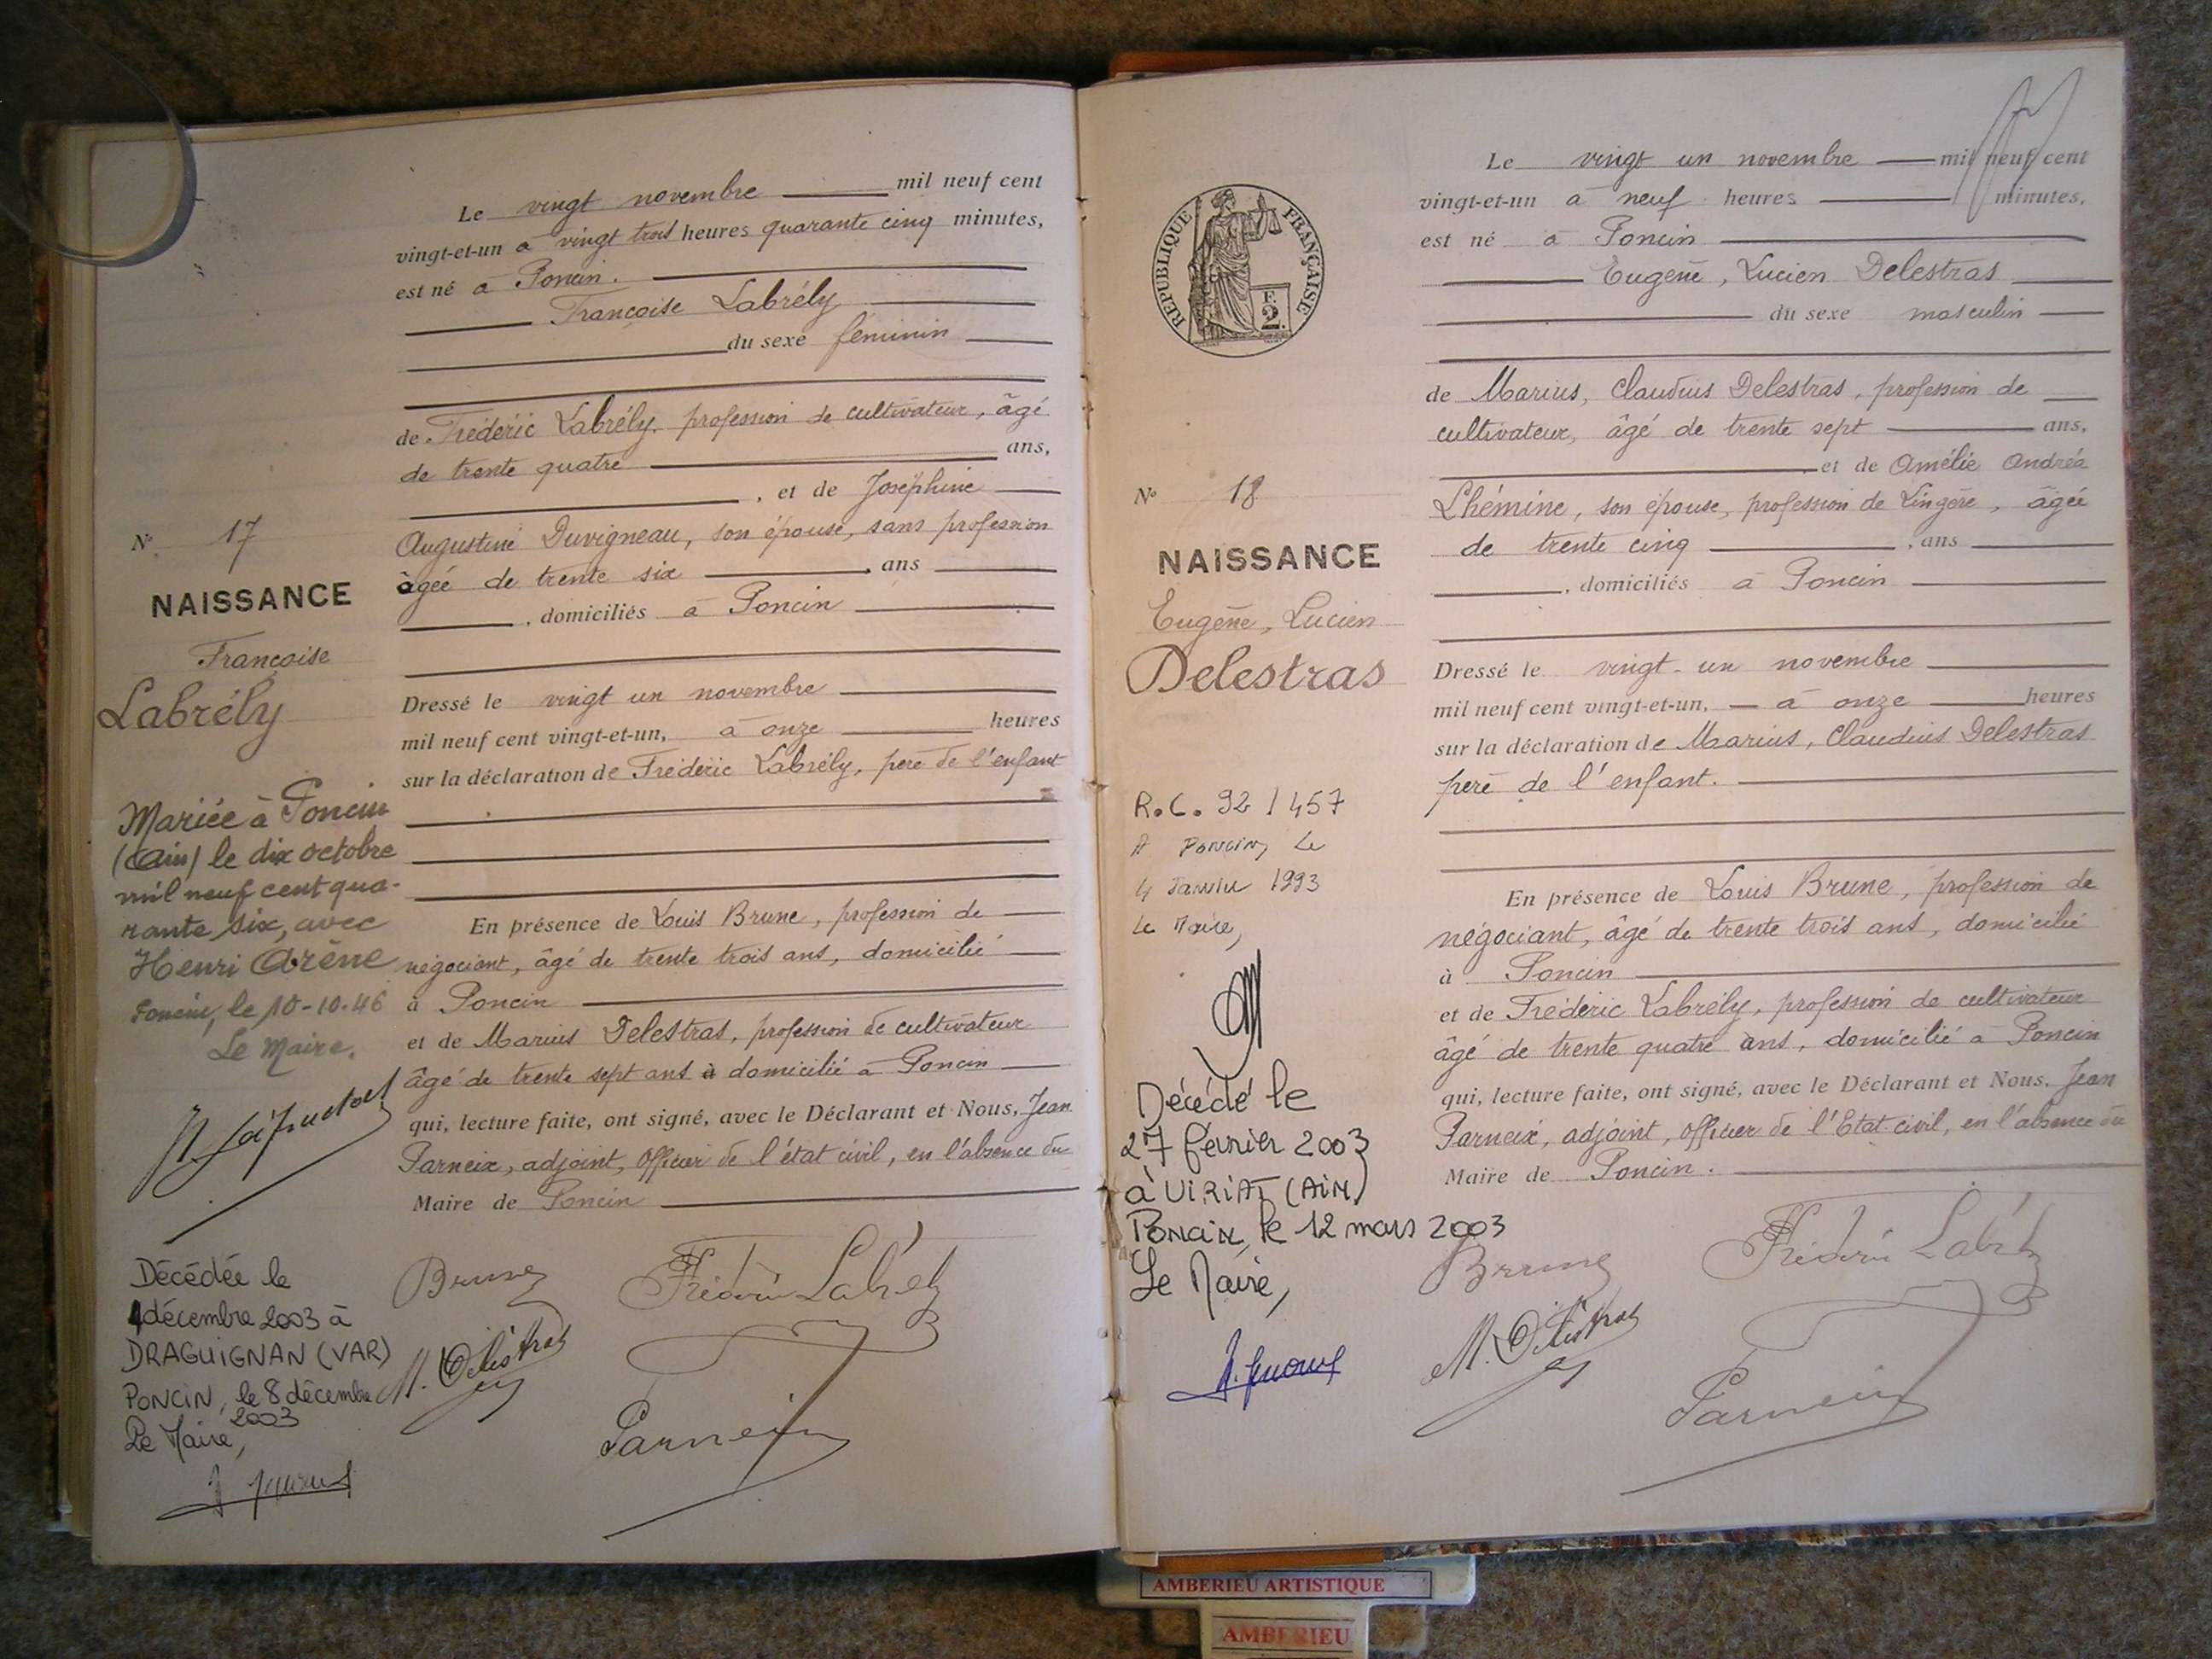 Le vingt novembre mil neuf cent
vingt-et-un à vingt trois heures quarante cinq minutes,
est né à Poncin.
Françoise Labrély
du sexe féminin
de Frédéric Labrély, profession de cultivateur, âgé
de trente quatre ans,
, et de Joséphine
Augustine Duvigneau, son épouse, sans profession
âgée de trente six , ans
, domiciliés à Poncin
Dressé le vingt un novembre
mil neuf cent vingt-et-un, à onze heures
sur la déclaration de Frédéric Labrély, père de l'enfant
En présence de Louis Brune, profession de
négociant, âgé de trente trois ans, domicilié
à Poncin
et de Marius Delestras, profession de cultivateur
âgé de trente sept ans à domicilié à Poncin
qui, lecture faite, ont signé, avec le Déclarant et Nous, Jean
Parneix, adjoint, officier de l'état civil, en l'absence du
Maire de Poncin
Brune
Frédéric Labrély
M. Delestras
Parneix
N° 17
NAISSANCE
Françoise
Labrély
Mariée à Poncin
(Ain) le dix octobre
mil neuf cent qua-
rante six, avec
Henri Arène
Poncin, le 10-10-46
Le Maire.
Décédée le
1 décembre 2003 à
DRAGUIGNAN (VAR)
PONCIN, le 8 décembre
2003
Le Maire,
REPUBLIQUE FRANÇAISE
F.
2.
N° 18
NAISSANCE
Eugène, Lucien
Delestras
R.C. 92 / 457
A Poncin, Le
4 Janvier 1993
Le Maire,
Décédé le
27 février 2003
à VIRIAT (AIN)
Poncin, le 12 mars 2003
Le Maire,
Le vingt un novembre mil neuf cent
vingt-et-un à neuf heures minutes,
est né à Poncin
Eugène, Lucien Delestras
du sexe masculin
de Marius, Claudius Delestras, profession de
cultivateur, âgé de trente sept ans,
et de Amélie Andréa
Lhémine, son épouse, profession de Lingère, âgée
de trente cinq , ans
, domiciliés à Poncin
Dressé le vingt-un novembre
mil neuf cent vingt-et-un, à onze heures
sur la déclaration de Marius, Claudius Delestras
père de l'enfant.
En présence de Louis Brune, profession de
négociant, âgé de trente trois ans, domicilié
à Poncin
et de Frédéric Labrély, profession de cultivateur
âgé de trente quatre ans, domicilié à Poncin
qui, lecture faite, ont signé, avec le Déclarant et Nous, Jean
Parneix, adjoint, officier de l'Etat civil, en l'absence du
Maire de Poncin.
Brune
Frédéric Labrély
M. Delestras
Parneix
AMBERIEU ARTISTIQUE
AMBERIEU